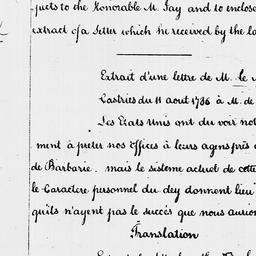 jects to the Honorable M. Jay and to enclose
extract of a letter which he received by the la
Extrait d'une lettre de M. le M
Castries du 11 aout 1786 à M. de
Les Etats Unis ont du voir not
ment à preter nos offices à leurs agens près d
de Barbarie. mais le sisteme actuel de cette
le Caractère personnel du dey donnent lieu
qu'ils n'ayent pas le succès que nous aurion
Translation